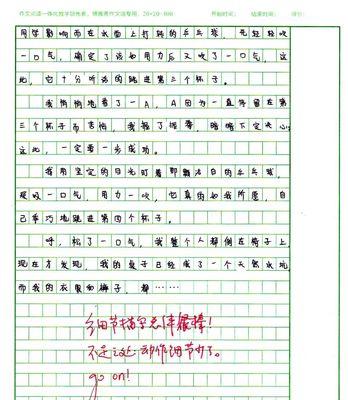 作文词道一体化教学研究者、情雅居作文馆专用、20×20=400 开始时间： 结束时间： 评价：
同学影响而在水面上打转的乒乓球，先轻轻吹
一口气，确定了该如力后又吹了一口气，这
化，它十分听话的跳进了第三个杯子。
我悄悄地看了一A，A因为一直停留在第
三个杯子而苦恼，我握了握拳，暗暗下定决心：
这次，一定要一步成功。
我用坚定的目光盯着那颗洁白的乒乓球，
深吸一口气，用力一吹，它真的如我所愿，自
己乖巧地跳进第四个杯子。
呼，松了一口气，我整个人都倒在椅子上
现在才发现，我的桌子已经成了一个天然水坑
而我的衣服和裤子，都……
细节描写总体很棒！
不足之处：动作细节少了。
go on!